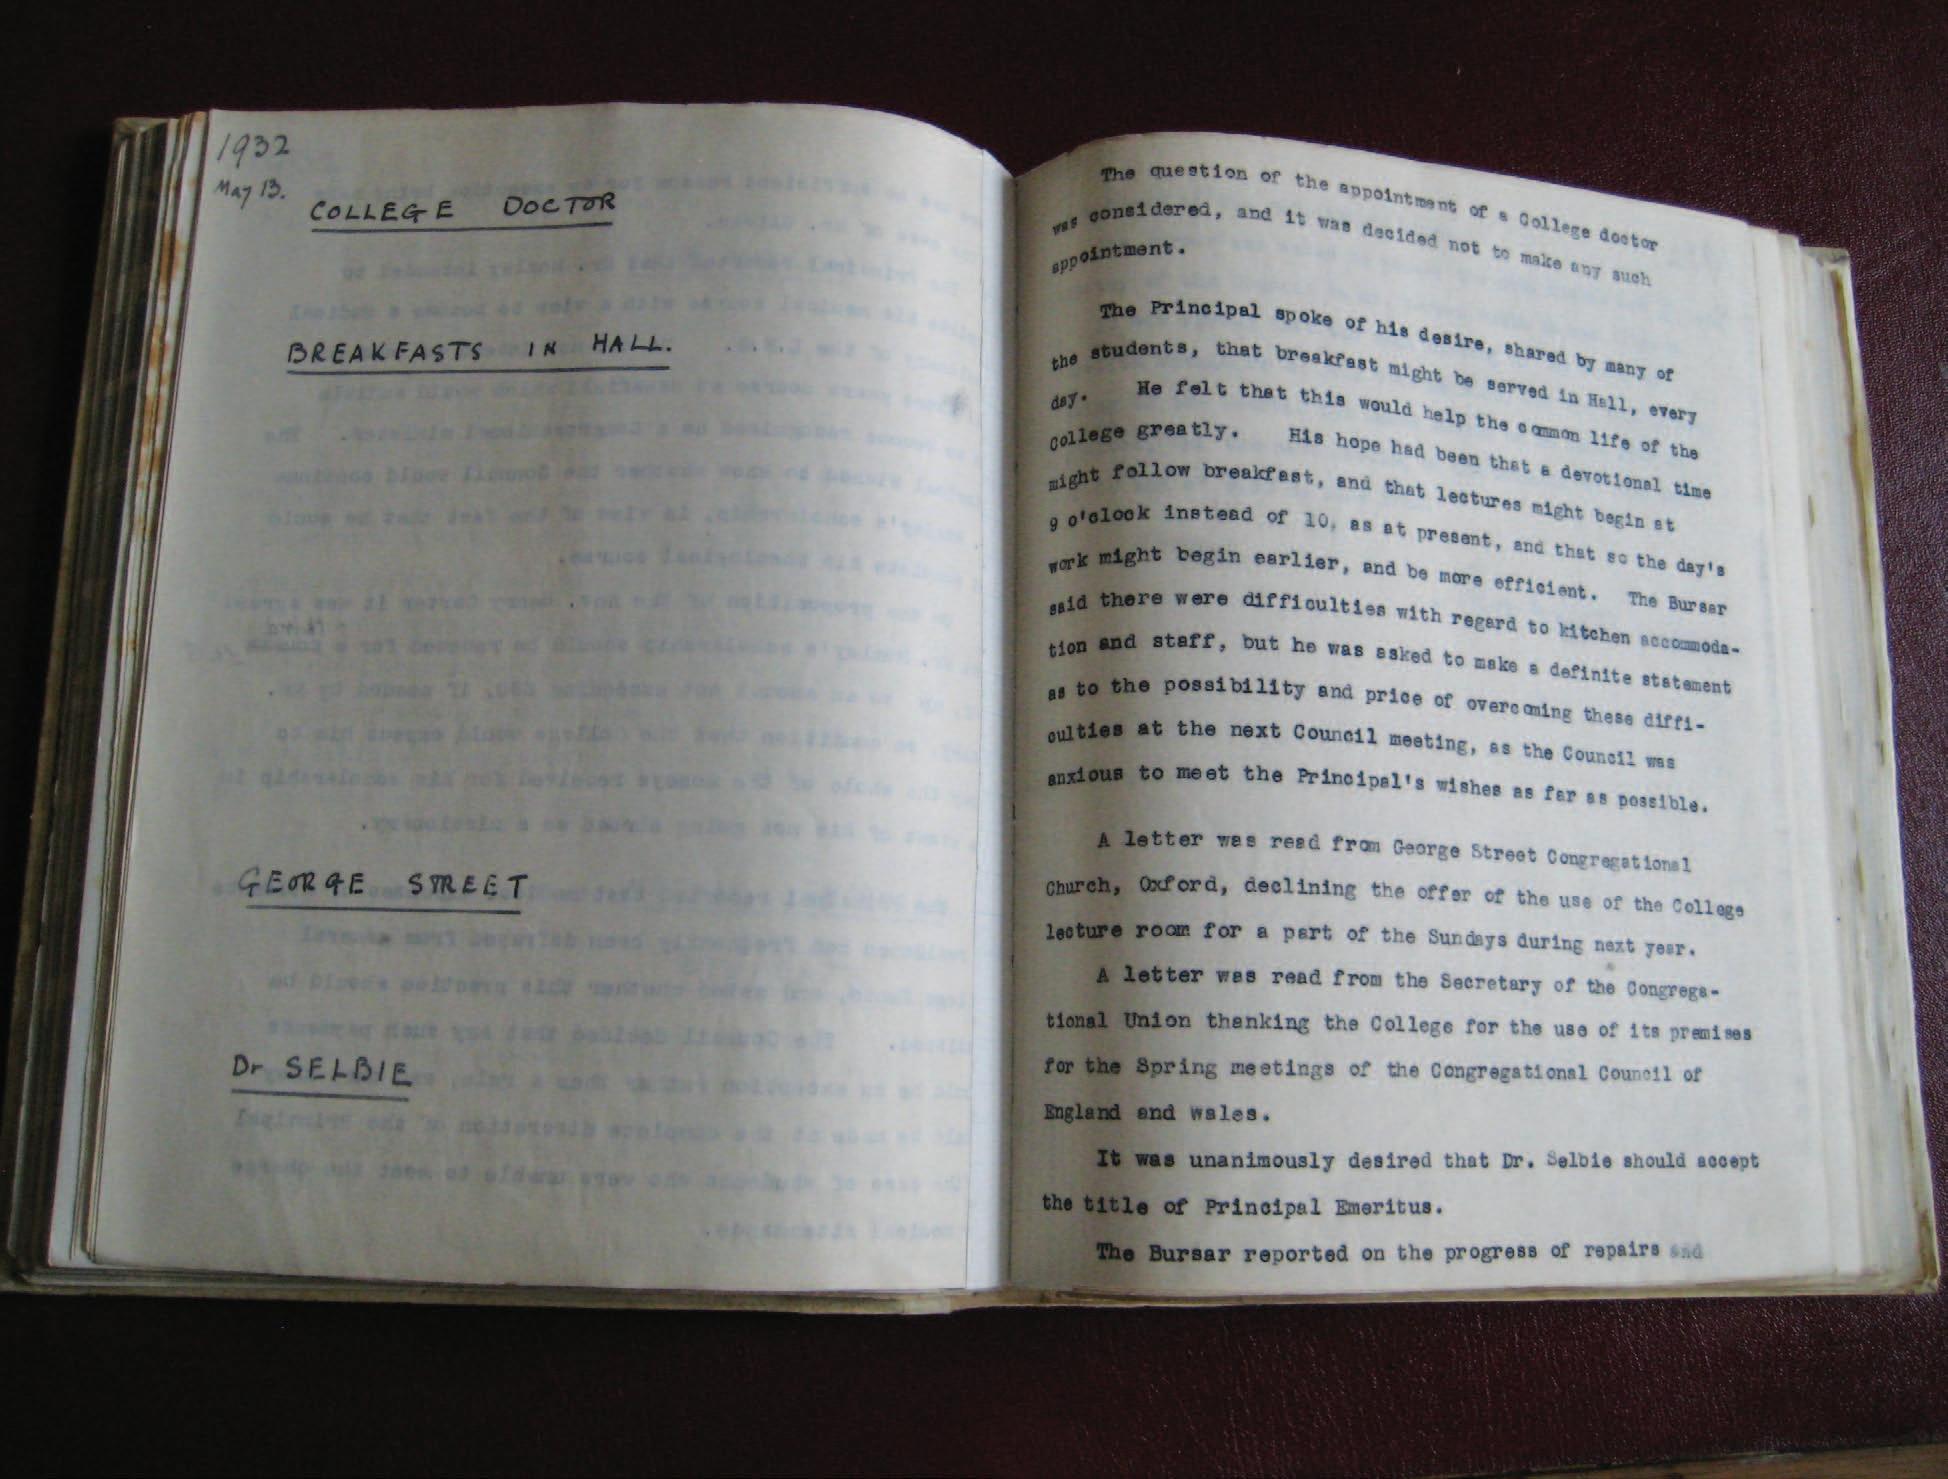 1932
May 13.
COLLEGE DOCTOR
BREAKFASTS IN HALL.
GEORGE STREET
Dr SELBIE
The question of the appointment of a College doctor
was considered, and it was decided not to make any such
appointment.
The Principal spoke of his desire, shared by many of
the students, that breakfast might be served in Hall, every
day. He felt that this would help the common life of the
College greatly. His hope had been that a devotional time
might follow breakfast, and that lectures might begin at
9 o'clock instead of 10, as at present, and that so the day's
work might begin earlier, and be more efficient. The Bursar
said there were difficulties with regard to kitchen accommoda-
tion and staff, but he was asked to make a definite statement
as to the possibility and price of overcoming these diffi-
culties at the next Council meeting, as the Council was
anxious to meet the Principal's wishes as far as possible.
A letter was read from George Street Congregational
Church, Oxford, declining the offer of the use of the College
lecture room for a part of the Sundays during next year.
A letter was read from the Secretary of the Congrega-
tional Union thanking the College for the use of its premises
for the Spring meetings of the Congregational Council of
England and Wales.
It was unanimously desired that Dr. Selbie should accept
the title of Principal Emeritus.
The Bursar reported on the progress of repairs and